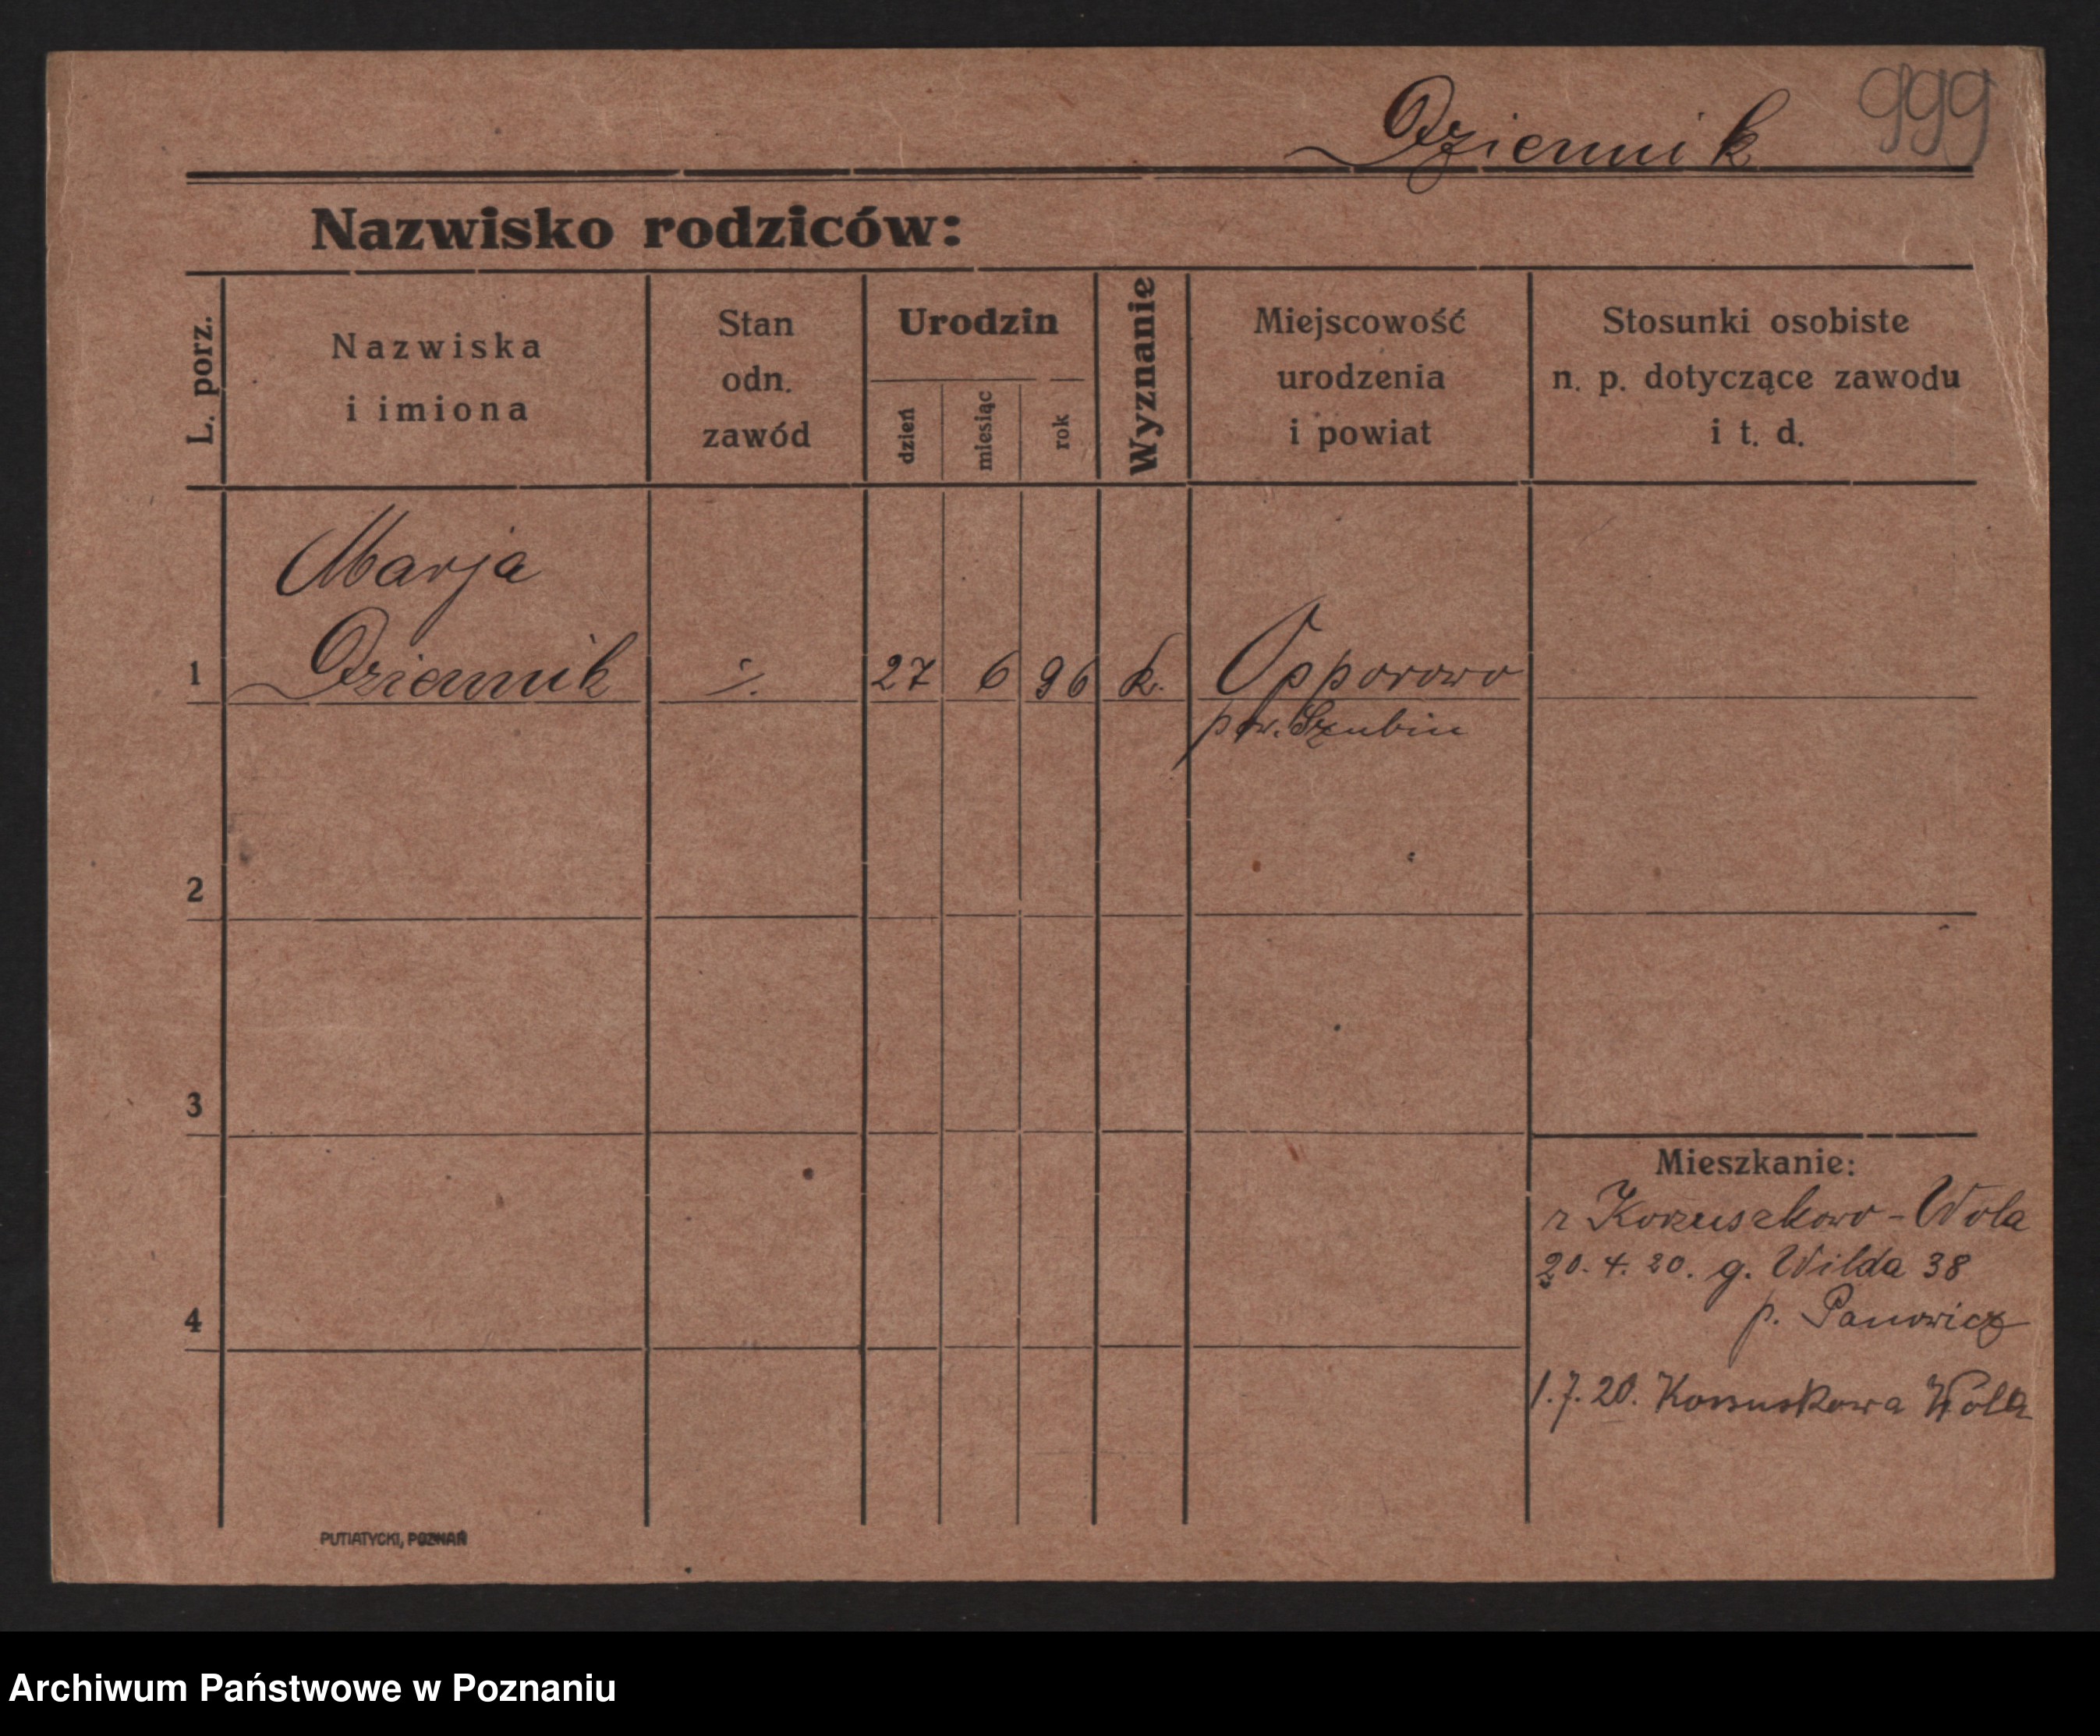 Dziennik 999
Nazwisko rodziców:
L. porz.
Nazwiska
i imiona
Stan
odn.
zawód
Urodzin
dzień
miesiąc
rok
Wyznanie
Miejscowość
urodzenia
i powiat
Stosunki osobiste
n. p. dotyczące zawodu
i t. d.
Marja
1 Dziennik ·/. 27 6 96 k. Opporowo
pow. Szubin
2
3
Mieszkanie:
z Korzuszkowo-Wola
20. 4. 20. g. Wilda 38
p. Panowicz
4
1. 7. 20. Wola
PUTIATYCKI, POZNAŃ
Archiwum Państwowe w Poznaniu